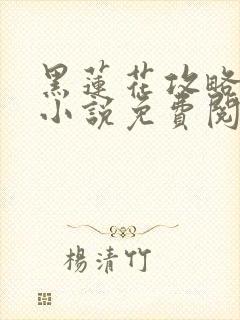 黑蓮花攻略
小說免費閱
楊清竹